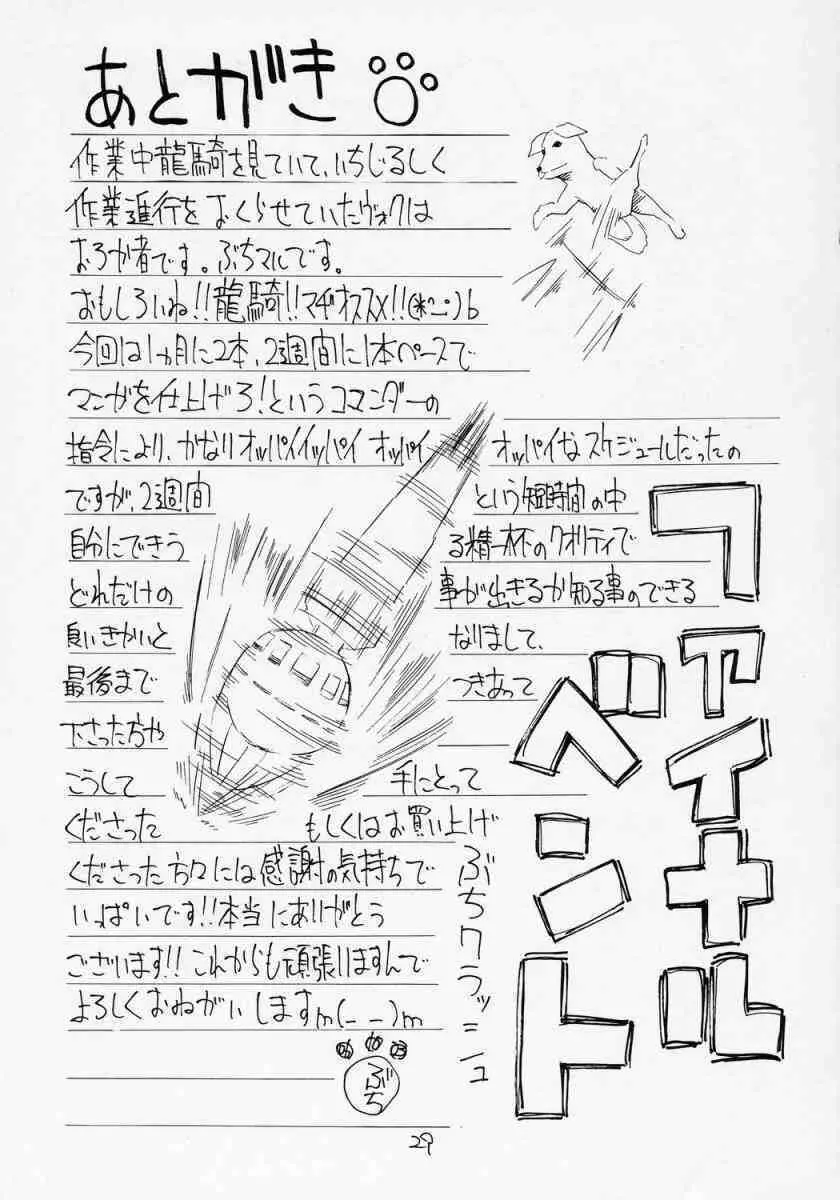 あとがき
作業中龍騎を見ていて、いちじるしく
作業進行をおくらせていたヴォクは
おろか者です。ぶちマルです。
おもしろいね!!龍騎!!マヂオススメ!!(*^_^)b
今回は1ヵ月に2本、2週間に1本ペースで
マンガを仕上げろ!というコマンダーの
指令により、かなりオッパイイッパイ オッパイ オッパイなスケジュールだったの
ですが、2週間 という短時間の中
自分にできう る精一杯のクオリティで
どれだけの 事が出きるか知る事のできる
良いきかいと なりまして、
最後まで つきあって
下さった方や
こうして 手にとって
くださった もしくはお買い上げ
くださった方々には感謝の気持ちで
いっぱいです!!本当にありがとう
ございます!!これからも頑張りますんで
よろしくおねがいしますm(_ _)m
ぶち
ファイナル
ベント
ぶちクラッシュ
29